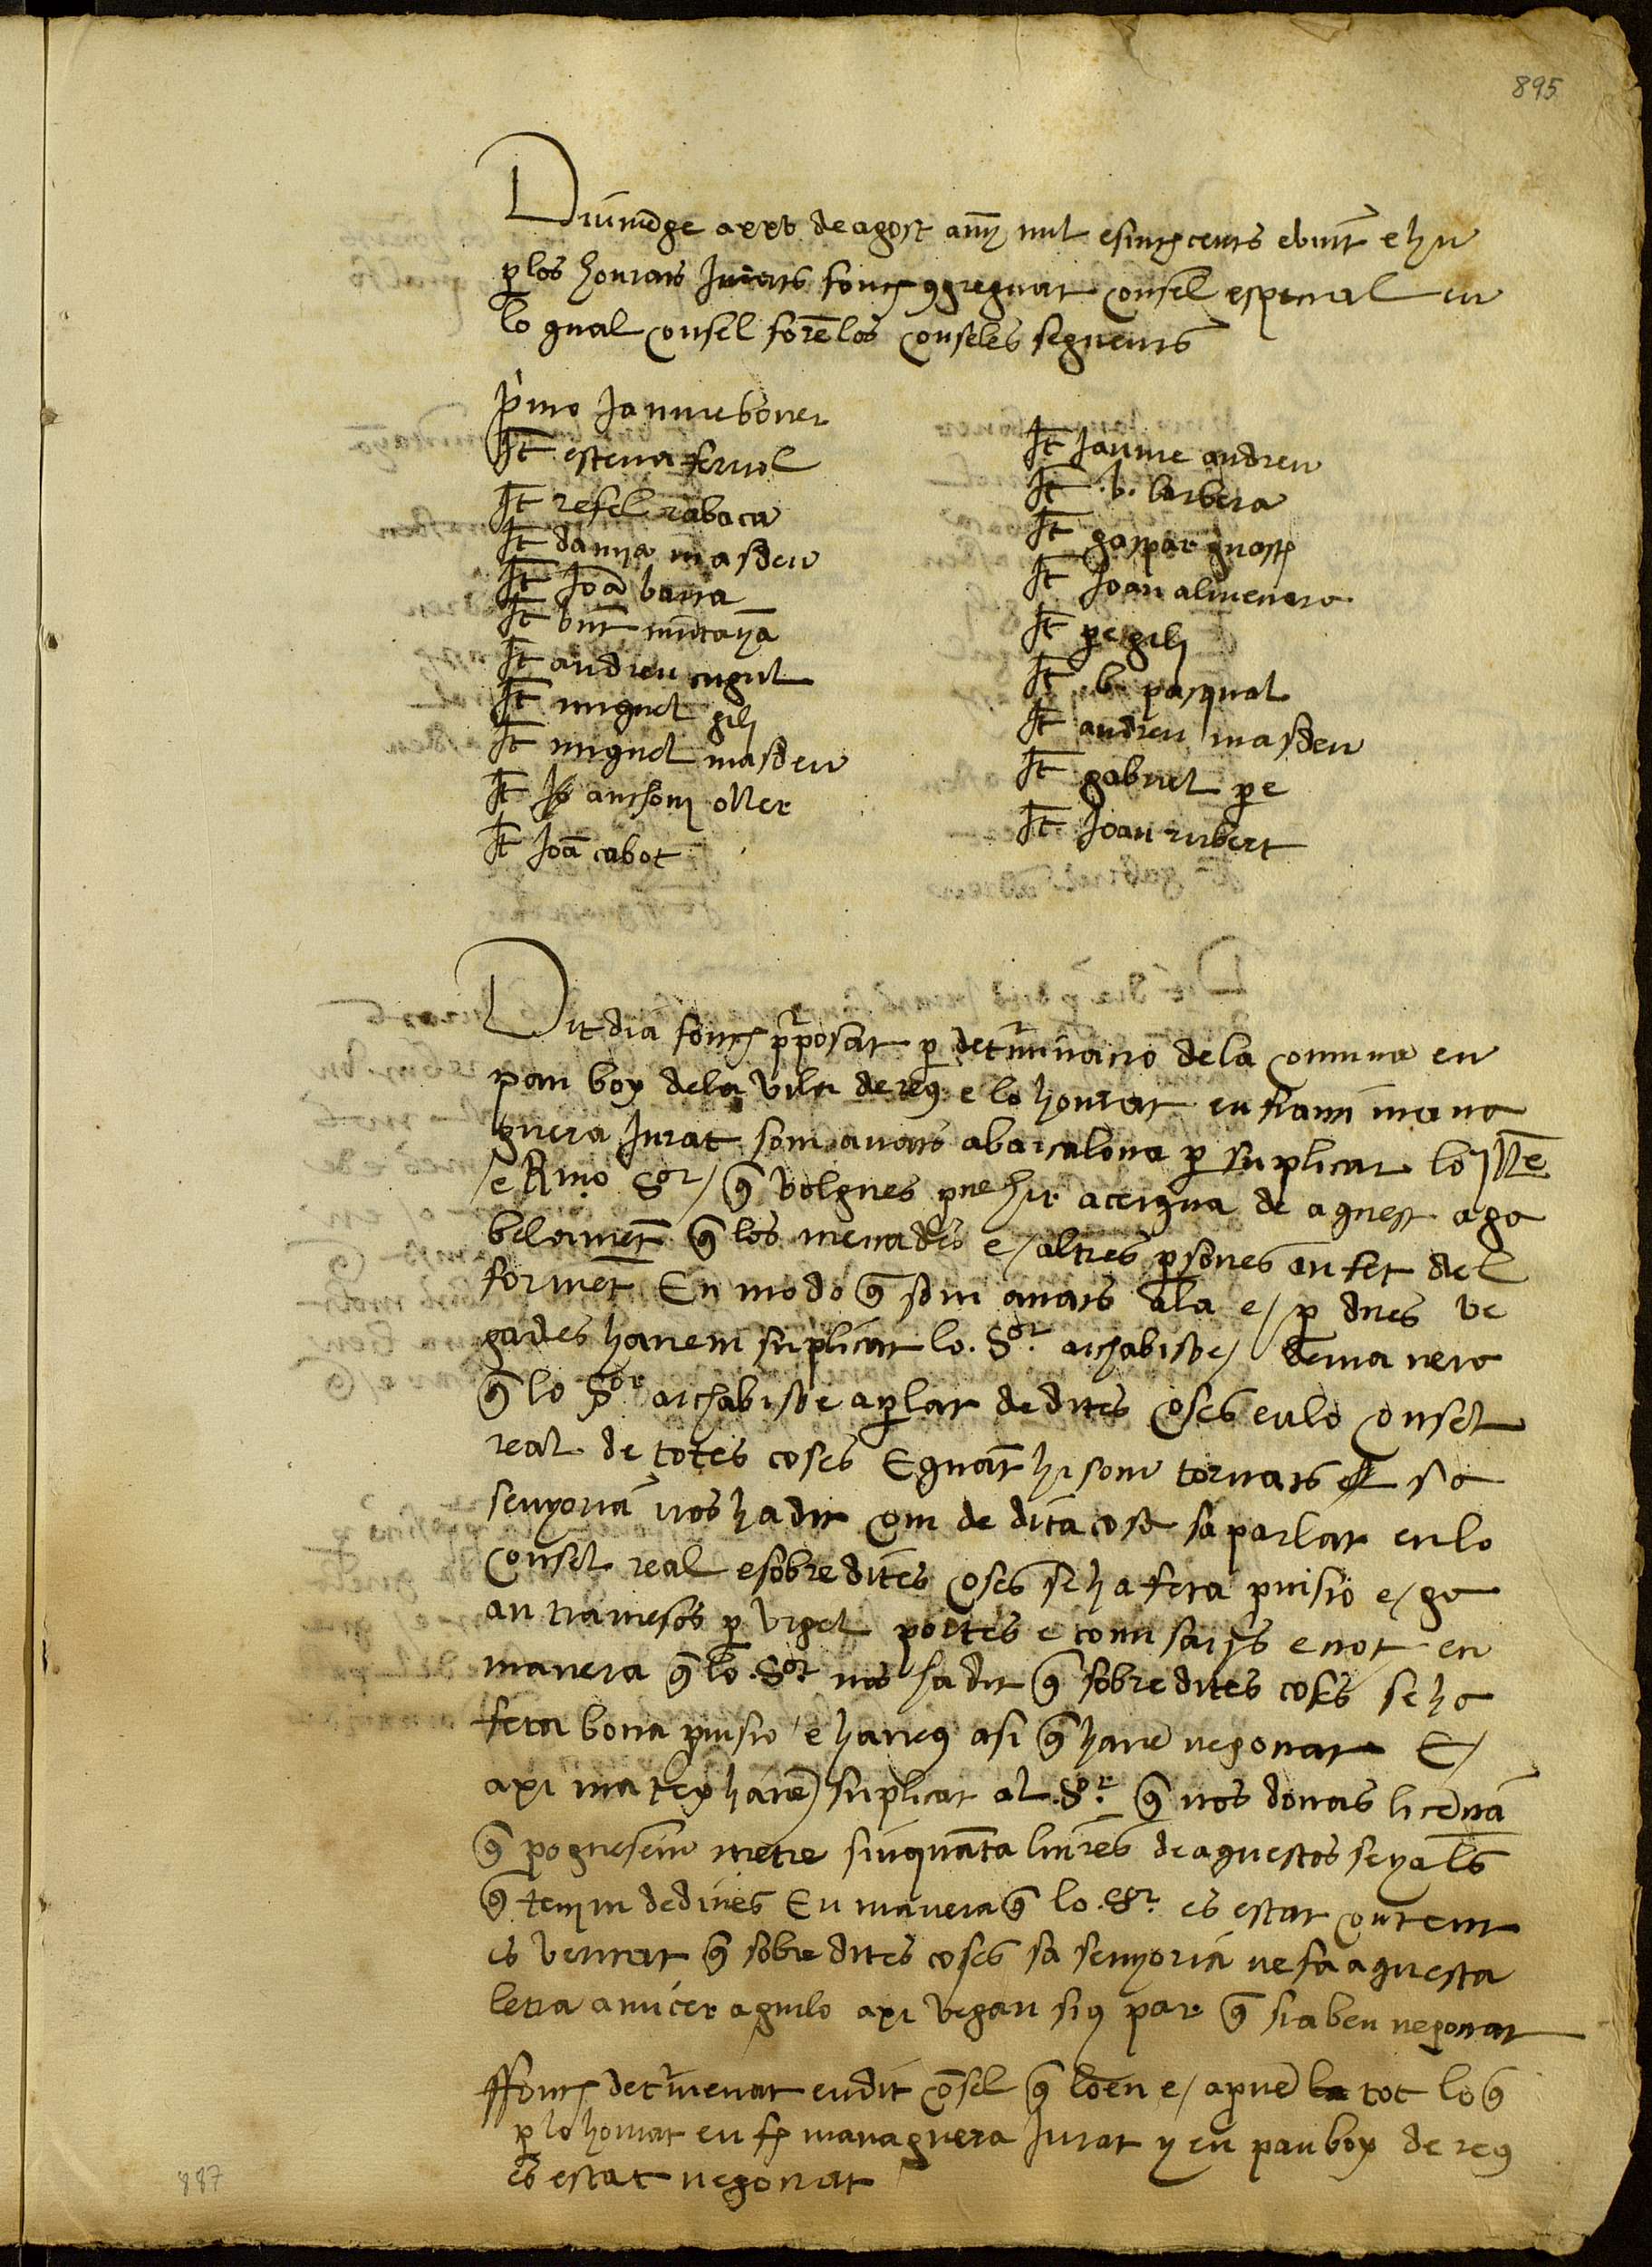 895
Diumẽge a xxv de agost any mil e sinchcents e vint e hu
p los honrats Jurats fonch ɔgreguat consel espetial en
lo qual consel forẽ los conseles seguents
pͥmo Jaume boner
It esteva ferrol
It refel rabaca
It damya masdeu
It Joã barra
It vnt muntayã
It andreu cugul
It miguel gili
It miguel masdeu
It anthoni oller
It Joã cabot
It Jaume andreu
It .b. barbera
It gaspar guasch
It Joan alimenara
It pe gili
It .b. pasqual
It andreu masdeu
It gabriel pe
It Joan rubert
Dit dia fonch pͥposat p detͥminatio de la comuna en
pau boy de la vila de reꝰ e lo honrat en frani mana
guera Jurat som anats a barcalona p suplicar lo Jllẽ
e Rmo Sor / q̃ volgues pnehir acerqua de aquest aga
belamẽt q̃ los mercadés e / altres psones an fet del
formẽt En modo q̃ som anats ala e / p dues ve
gades havem suplicat lo .Sor. archabisbe / de manera
q̃ lo Sor archabisbe a plar de dites coses en lo consel
real de totes coses E quãt hi som tornats sa
senyoriã nos ha dit com de dita cosa sa parlat en lo
consel real e sobre dites coses se ha feta pvisio e / ga
an tramesos p vrgel portes e comisarjs e tot en
manera q̃ lo .Sor. nos ha dit q̃ sobre dites coses se ha
feta bona pvisio e haveꝰ asi q̃ havẽ negotiat E /
axi matex havẽ suplicat al .Sor. q̃ nos donas licentiã
q̃ poguesem metre sinquãta liures de aquestos seyals
q̃ tenim de dines En manera q̃ lo .Sor. es estat content
es veritat q̃ sobre dites coses sa senyoria ne fa aquesta
letra a micer aguilo axi vegan siꝰ par q̃ sia ben negotiat
ffonch detͥmenat en dit cõsel q̃ loen e / aproẽ tot lo q̃
p lo honrat en fͥ managuera Jurat y en pau boy de reꝰ
es estat negotiat
887